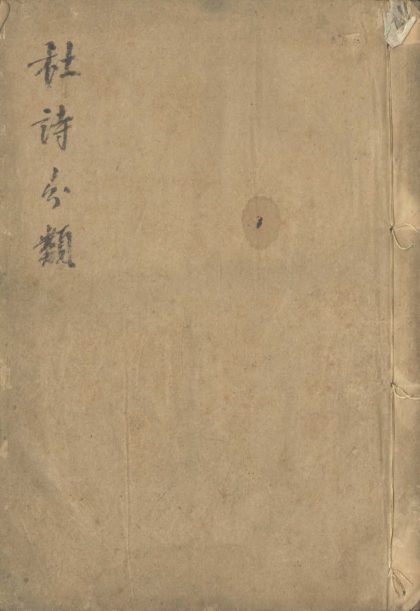 杜詩分類